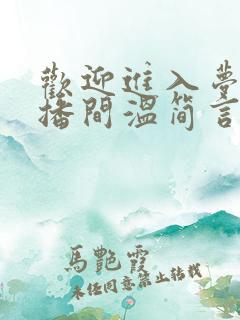 歡迎進入夢
播間溫简言
馬艷霞
未经同意禁止转载